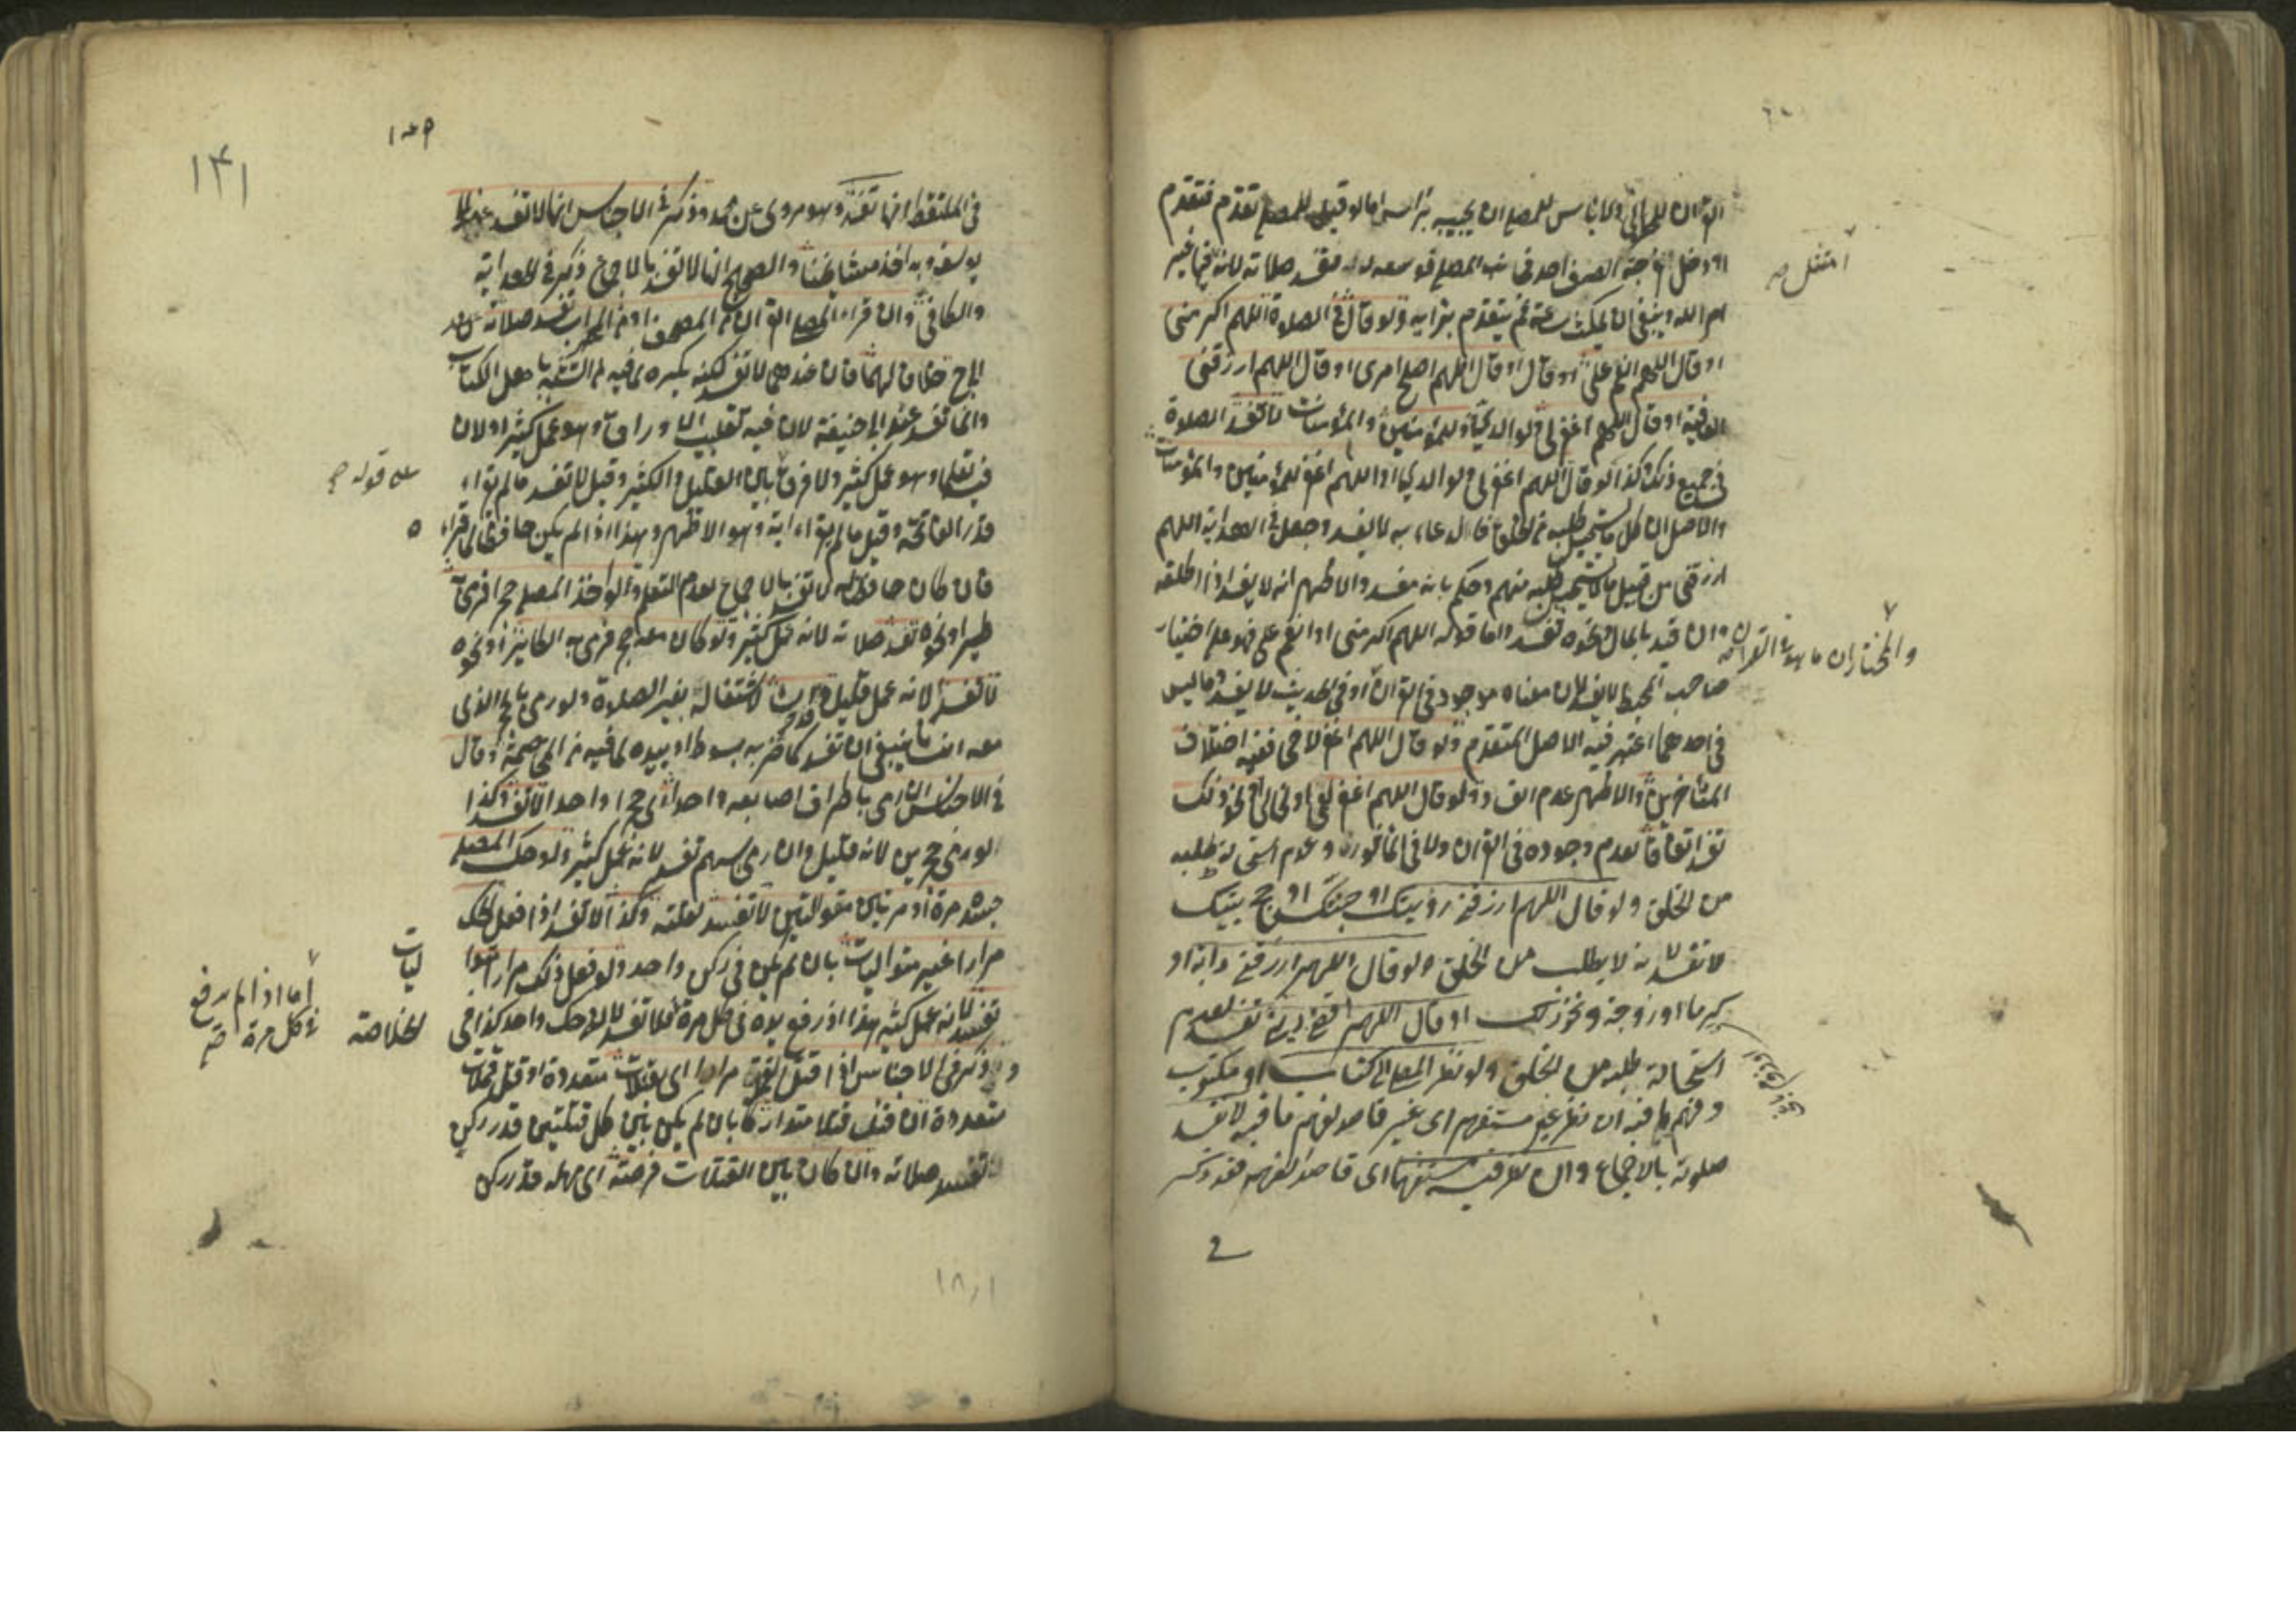 القرآن للحال ولا بأس للمصلي ان يجيبه براسه اما لو قيل للمصلي تقدم فتقدم
او دخل فرجة الصف احد فوسعه له تفسد صلاته لانه امتثل غير
امر الله وينبغي ان يمكث ساعة ثم يتقدم برايه ولو قال في الصلوة اللهم اكرمني
او قال اللهم انعم علي او قال اللهم اصلح امري او قال اللهم ارزقني
العافية او قال اللهم اغفر لي ولوالدي وللمؤمنين والمؤمنات لا تفسد الصلوة
في جميع ذلك كذا لو قال اللهم اغفر لي ولوالدي او اللهم اغفر للمؤمنين والمؤمنات
والاصل ان كل ما يستحيل طلبه من الخلق فالدعاء به لا يفسد وجعل في الهداية اللهم
ارزقني من قبيل ما لا يستحيل طلبه منهم وحكم بانه مفسد والاظهر انه لا يفسد اذا اطلقه
وان قيد بالمال ونحوه تفسد واما قوله اللهم اكرمني او انعم علي فهو على اختيار
صاحب المحيط لا يفسد لان معناه موجود في القرآن او في الحديث لا يفسد وما ليس
في احدهما اعتبر فيه الاصل المتقدم ولو قال اللهم اغفر لاخي ففيه اختلاف
المشايخ والاظهر عدم الفساد ولو قال اللهم اغفر لعمي او خالي او نحو ذلك
تفسد اتفاقا لعدم وجوده في القرآن ولا في المأثور وعدم استحالة طلبه
من الخلق ولو قال اللهم ارزقني رؤيتك او جنتك او حج بيتك
لا تفسد لانه لا يطلب من الخلق ولو قال اللهم ارزقني دابة او
كرما او زوجة ونحو ذلك او قال اللهم اقض ديني تفسد لعدم
استحالة طلبه من الخلق ولو نظر المصلي الى كتاب او مكتوب
وفهم ما فيه ان نظر غير مستفهم اى غير قاصد لفهم ما فيه لا تفسد
صلوته بالاجماع وان نظر فيه مستفهما اى قاصدا لفهمه فقد ذكر
امتثل صح
والمختار ان ما هو في القرآن
في الملتقط انها تفسد وهو مروى عن محمد وذكر في الاجناس انها لا تفسد عند ابي
يوسف وبه اخذ مشايخنا والصحيح انها لا تفسد بالاجماع ذكره في الهداية
والكافي وان قراء المصلي القرآن من المصحف او من المحراب تفسد صلاته عند
ابي ح خلافا لهما فان عندهما لا تفسد لكنه يكره لما فيه من التشبه باهل الكتاب
وانما تفسد عند ابي حنيفة لان فيه تقليب الاوراق وهو عمل كثير او لان
فيه تعلما وهو عمل كثير ولا فرق بين القليل والكثير وقيل لا تفسد ما لم يقراء
قدر الفاتحة وقيل ما لم يقراء اية وهو الاظهر وهذا اذا لم يكن حافظا لما قراء
فان كان حافظا له لا تفسد بالاجماع لعدم التعلم ولو اخذ المصلي حجرا فرمى
طيرا او نحوه تفسد صلاته لانه عمل كثير ولو كان معه حجر فرمى به الطائر او نحوه
لا تفسد لانه عمل قليل وقد اساء لاشتغاله بغير الصلوة ولو رمى بالحجر الذى
معه انسانا ينبغي ان تفسد كما لو ضربه بسوط او بيده لما فيه من المخاصمة وقال
في الاجناس ان رمى باطراف اصابعه واحدا اى حجرا واحدا لا تفسد وكذا
لو رمى حجرين لانه قليل وان رمى بسهم تفسد لانه عمل كثير ولو حك المصلي
جسده مرة او مرتين متواليتين لا تفسد لقلته وكذا لا تفسد اذا فعل الحك
مرارا غير متواليات بان لم يكن في ركن واحد ولو فعل ذلك مرارا متوا
تفسد لانه عمل كثير هذا اذا رفع يده في كل مرة فلا تفسد لانه حك واحد كذا في
وذكر في الاجناس اذا قتل القملة مرارا اى بقتلات متعددة او قتل قملات
متعددة ان قتل قتلا متداركا بان لم يكن بين كل قتلتين قدر ركن
تفسد صلاته وان كان بين القتلات فرصة اى مهلة قدر ركن
على قوله صح
ليات
الخلاصة
اما اذا لم يرفع
في كل مرة صح
١٤١